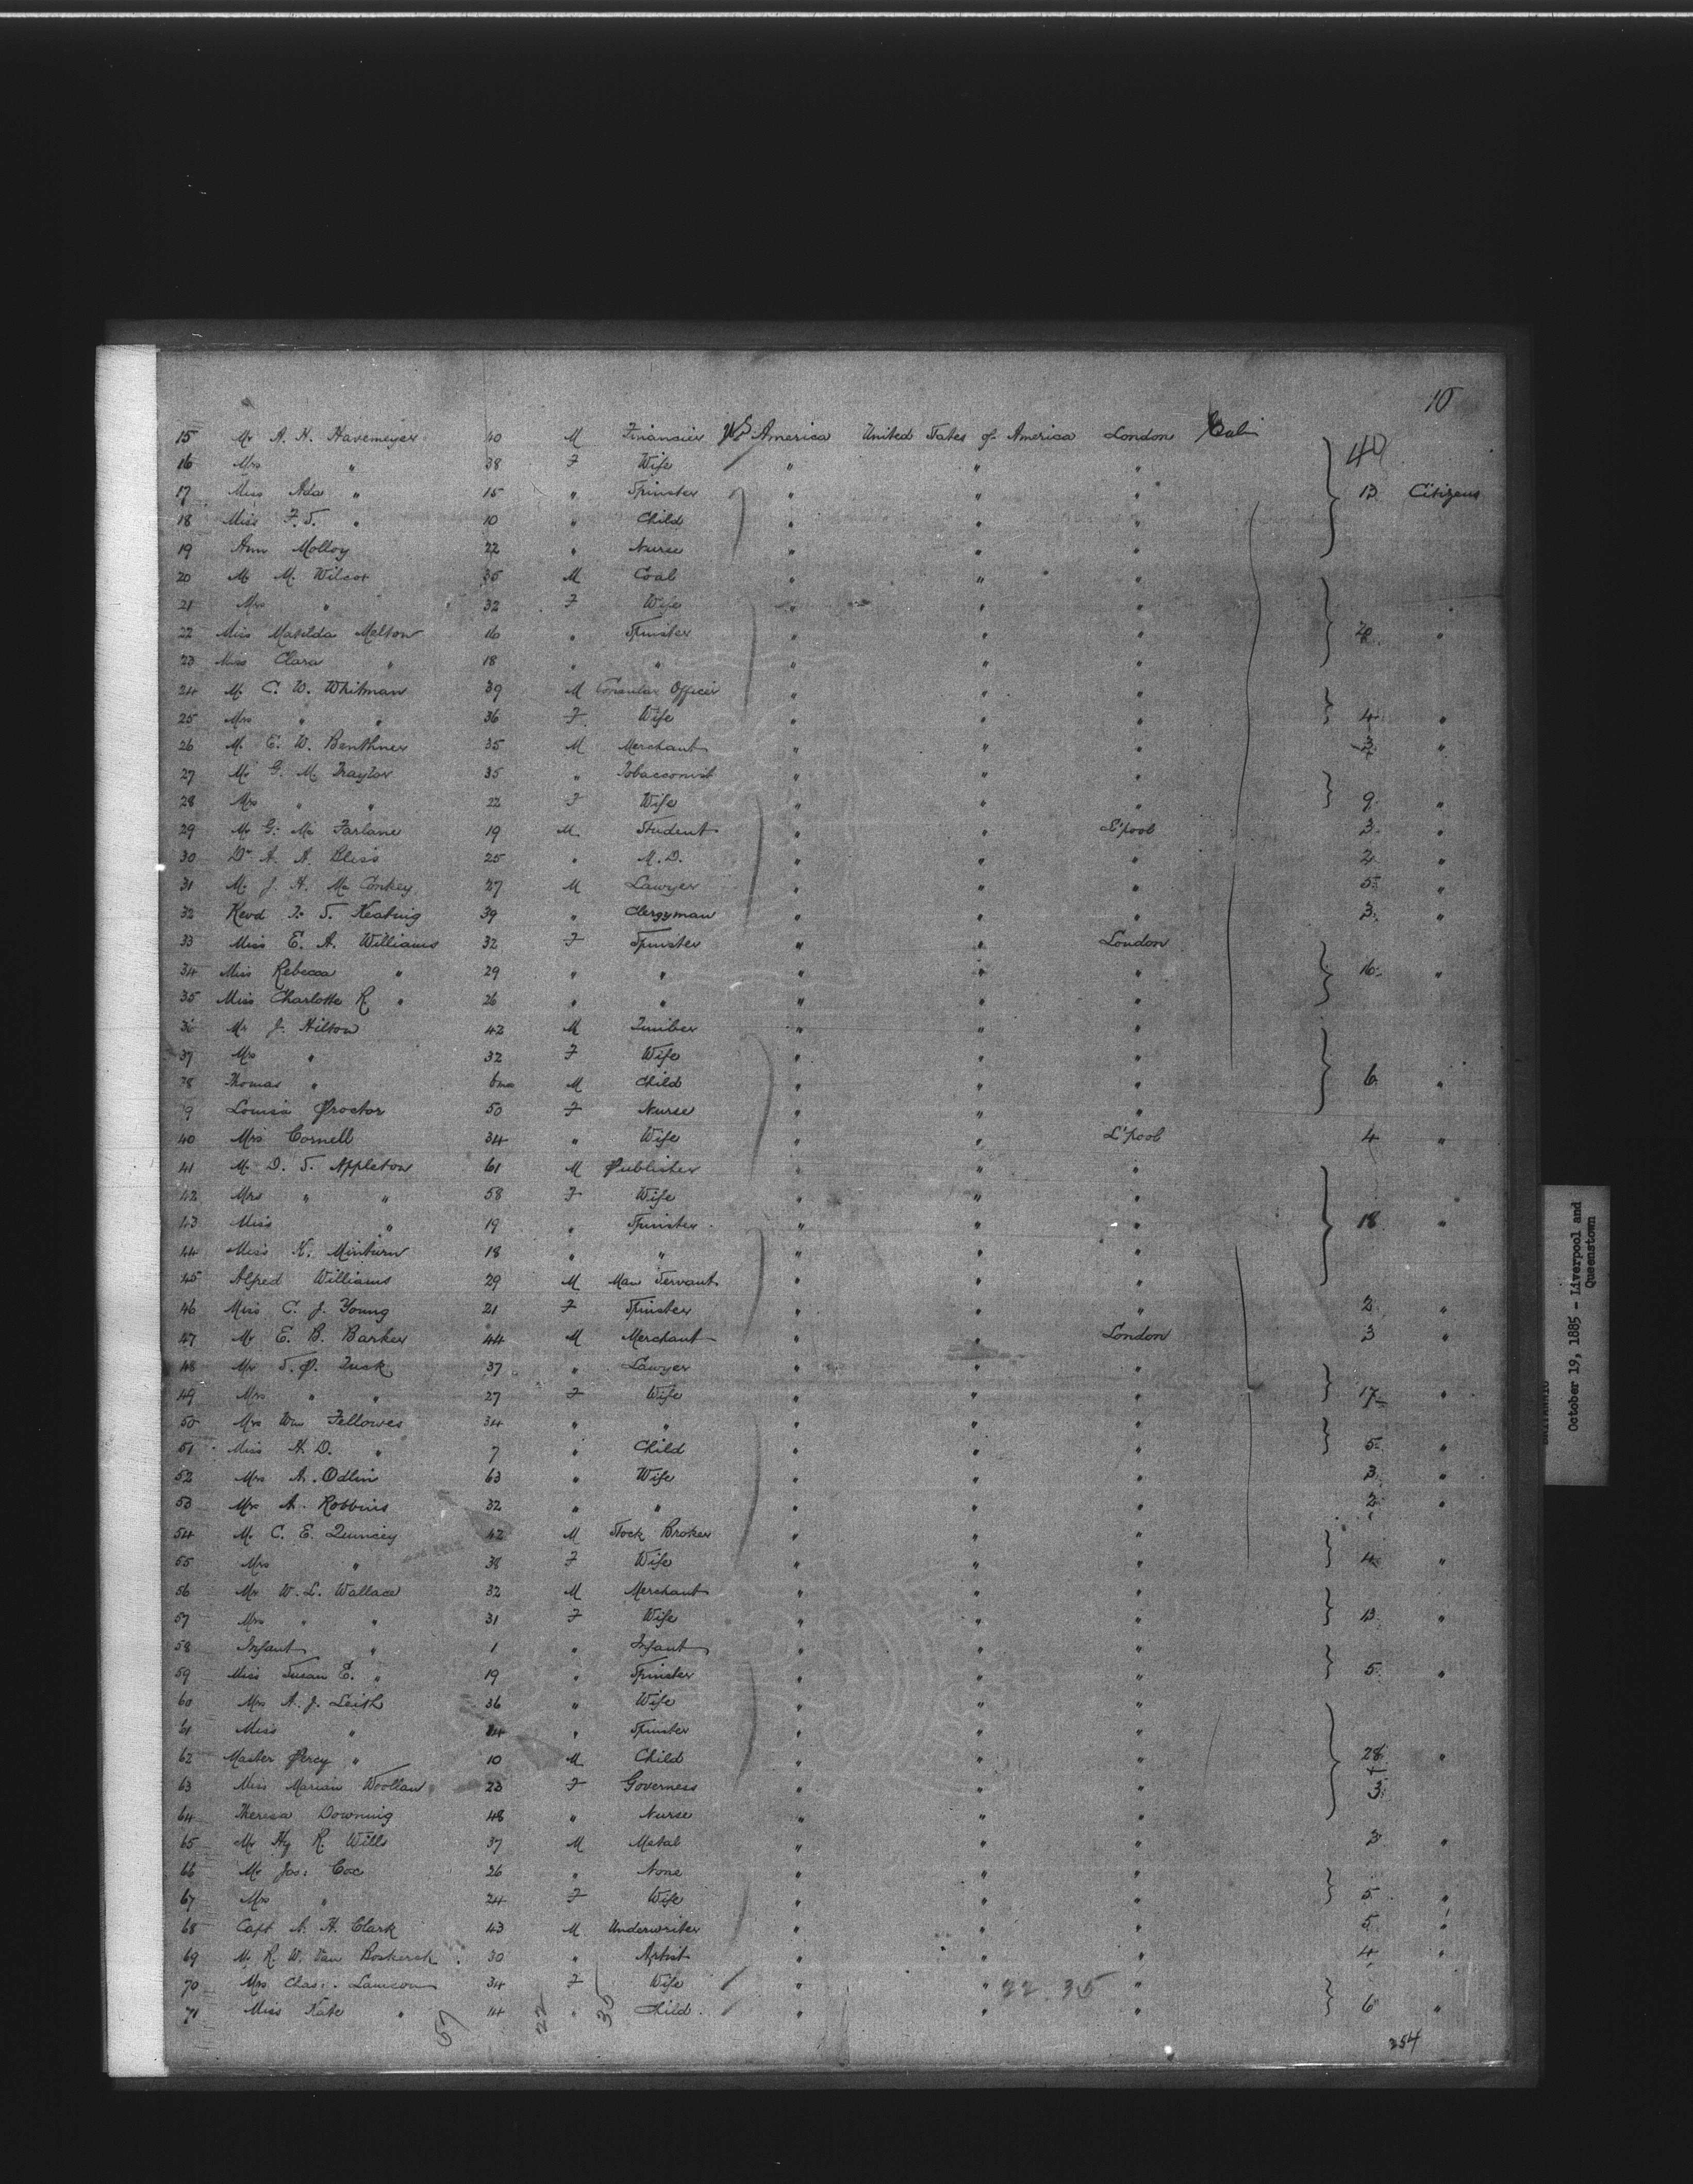 10
15 Mr A. H. Havemeyer 40 M Financier US America United States of America London Cabin 40
16 Mrs " 38 F Wife " " "
17 Miss Ada " 15 " Spinster " " " 13 Citizens
18 Miss F. S. " 10 " Child " " "
19 Ann Molloy 22 " Nurse " " "
20 Mr M. Wilcox 35 M Coal " " "
21 Mrs " 32 F Wife " " "
22 Miss Matilda Melson 16 " Spinster " " " 20 "
23 Miss Clara " 18 " " " " "
24 Mr C. W. Whitman 39 M Consular Officer " " "
25 Mrs " " 36 F Wife " " " 4 "
26 Mr E. W. Benthner 35 M Merchant " " " 3 "
27 Mr G. M. Traylor 35 " Tobacconist " " "
28 Mrs " " 22 F Wife " " " 9 "
29 Mr G. Mc Farlane 19 M Student " " L'pool 3 "
30 Dr A. A. Bliss 25 " M.D. " " " 2 "
31 Mr J. H. Mc Conkey 27 M Lawyer " " " 5 "
32 Revd J. S. Keating 39 " Clergyman " " " 3 "
33 Miss E. A. Williams 32 F Spinster " " London
34 Miss Rebecca " 29 " " " " " 16 "
35 Miss Charlotte R. " 26 " " " " "
36 Mr J. Hilson 42 M Timber " " "
37 Mrs " 32 F Wife " " "
38 Thomas " 6 mos M Child " " " 6 "
9 Louisa Proctor 50 F Nurse " " "
40 Mrs Cornell 34 " Wife " " L'pool 4 "
41 Mr D. S. Appleton 61 M Publisher " " "
42 Mrs " " 58 F Wife " " "
43 Miss " 19 " Spinster " " " 18 "
44 Miss K. Minturn 18 " " " " "
45 Alfred Williams 29 M Man Servant " " "
46 Miss C. J. Young 21 F Spinster " " " 2 "
47 Mr E. B. Barker 44 M Merchant " " London 3 "
48 Mr S. P. Tuck 37 " Lawyer " " "
49 Mrs " " 27 F Wife " " " 17 "
50 Mrs Wm Fellowes 34 " " " " "
51 Miss H. D. " 7 " Child " " " 5 "
52 Mrs A. Odlin 63 " Wife " " " 3 "
53 Mrs A. Robbins 32 " " " " " 2 "
54 Mr C. E. Quincey 42 M Stock Broker " " "
55 Mrs " 38 F Wife " " " 4 "
56 Mr W. L. Wallace 32 M Merchant " " "
57 Mrs " " 31 F Wife " " " 13 "
58 Infant " 1 " Infant " " "
59 Miss Susan E. " 19 " Spinster " " " 5 "
60 Mrs A. J. Leith 36 " Wife " " "
61 Miss " 14 " Spinster " " "
62 Master Percy " 10 M Child " " " 28 "
63 Miss Marian Woollan 23 F Governess " " " + 3
64 Theresa Downing 48 " Nurse " " "
65 Mr Hy R. Wills 37 M Metal " " " 3 "
66 Mr Jas: Cox 26 " None " " "
67 Mrs " 24 F Wife " " " 5 "
68 Capt A. H. Clark 43 M Underwriter " " " 5 "
69 Mr R. W. Van Boskerck 30 " Artist " " " 4 "
70 Mrs Chas: Lamson 34 F Wife " " 22.35 "
71 Miss Kate " 14 " Child " " " 6 "
57 22 35
254
October 19, 1885 - Liverpool and
Queenstown